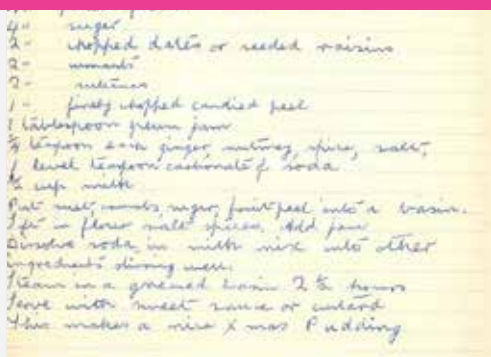 4" sugar
2" chopped dates or seeded raisins
2" currants
2" sultanas
1" finely chopped candied peel
1 tablespoon plum jam
teaspoon each ginger nutmeg, spice, salt,
1 level teaspoon carbonate of soda
½ cup milk
Put suet, crumbs, sugar, fruit peel into a basin.
Sift in flour salt spices, Add jam
Dissolve soda in milk mix into other
ingredients stirring well.
Steam in a greased basin 2½ hours
Serve with sweet sauce or custard
This makes a nice Xmas Pudding